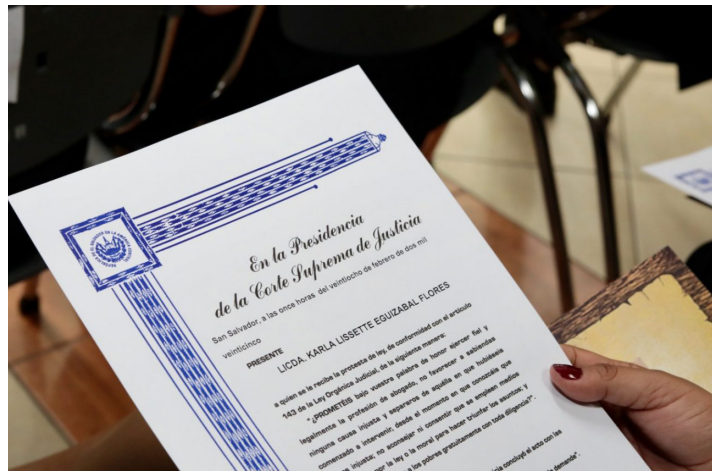 En la Presidencia
de la Corte Suprema de Justicia
San Salvador, a las once horas del veintiocho de febrero de dos mil
veinticinco
PRESENTE
LICDA. KARLA LISSETTE EGUIZABAL FLORES
a quien se le recibe la protesta de ley, de conformidad con el artículo
143 de la Ley Orgánica Judicial, de la siguiente manera:
"¿PROMETÉIS bajo vuestra palabra de honor ejercer fiel y
legalmente la profesión de abogado, no favorecer a sabiendas
ninguna causa injusta y separaros de aquélla en que hubiéseis
comenzado a intervenir, desde el momento en que conozcáis que
injusta; no aconsejar ni consentir que se empleen medios
por la ley o la moral para hacer triunfar los asuntos; y
a los pobres gratuitamente con toda diligencia?".
concluyó el acto con las
demande".